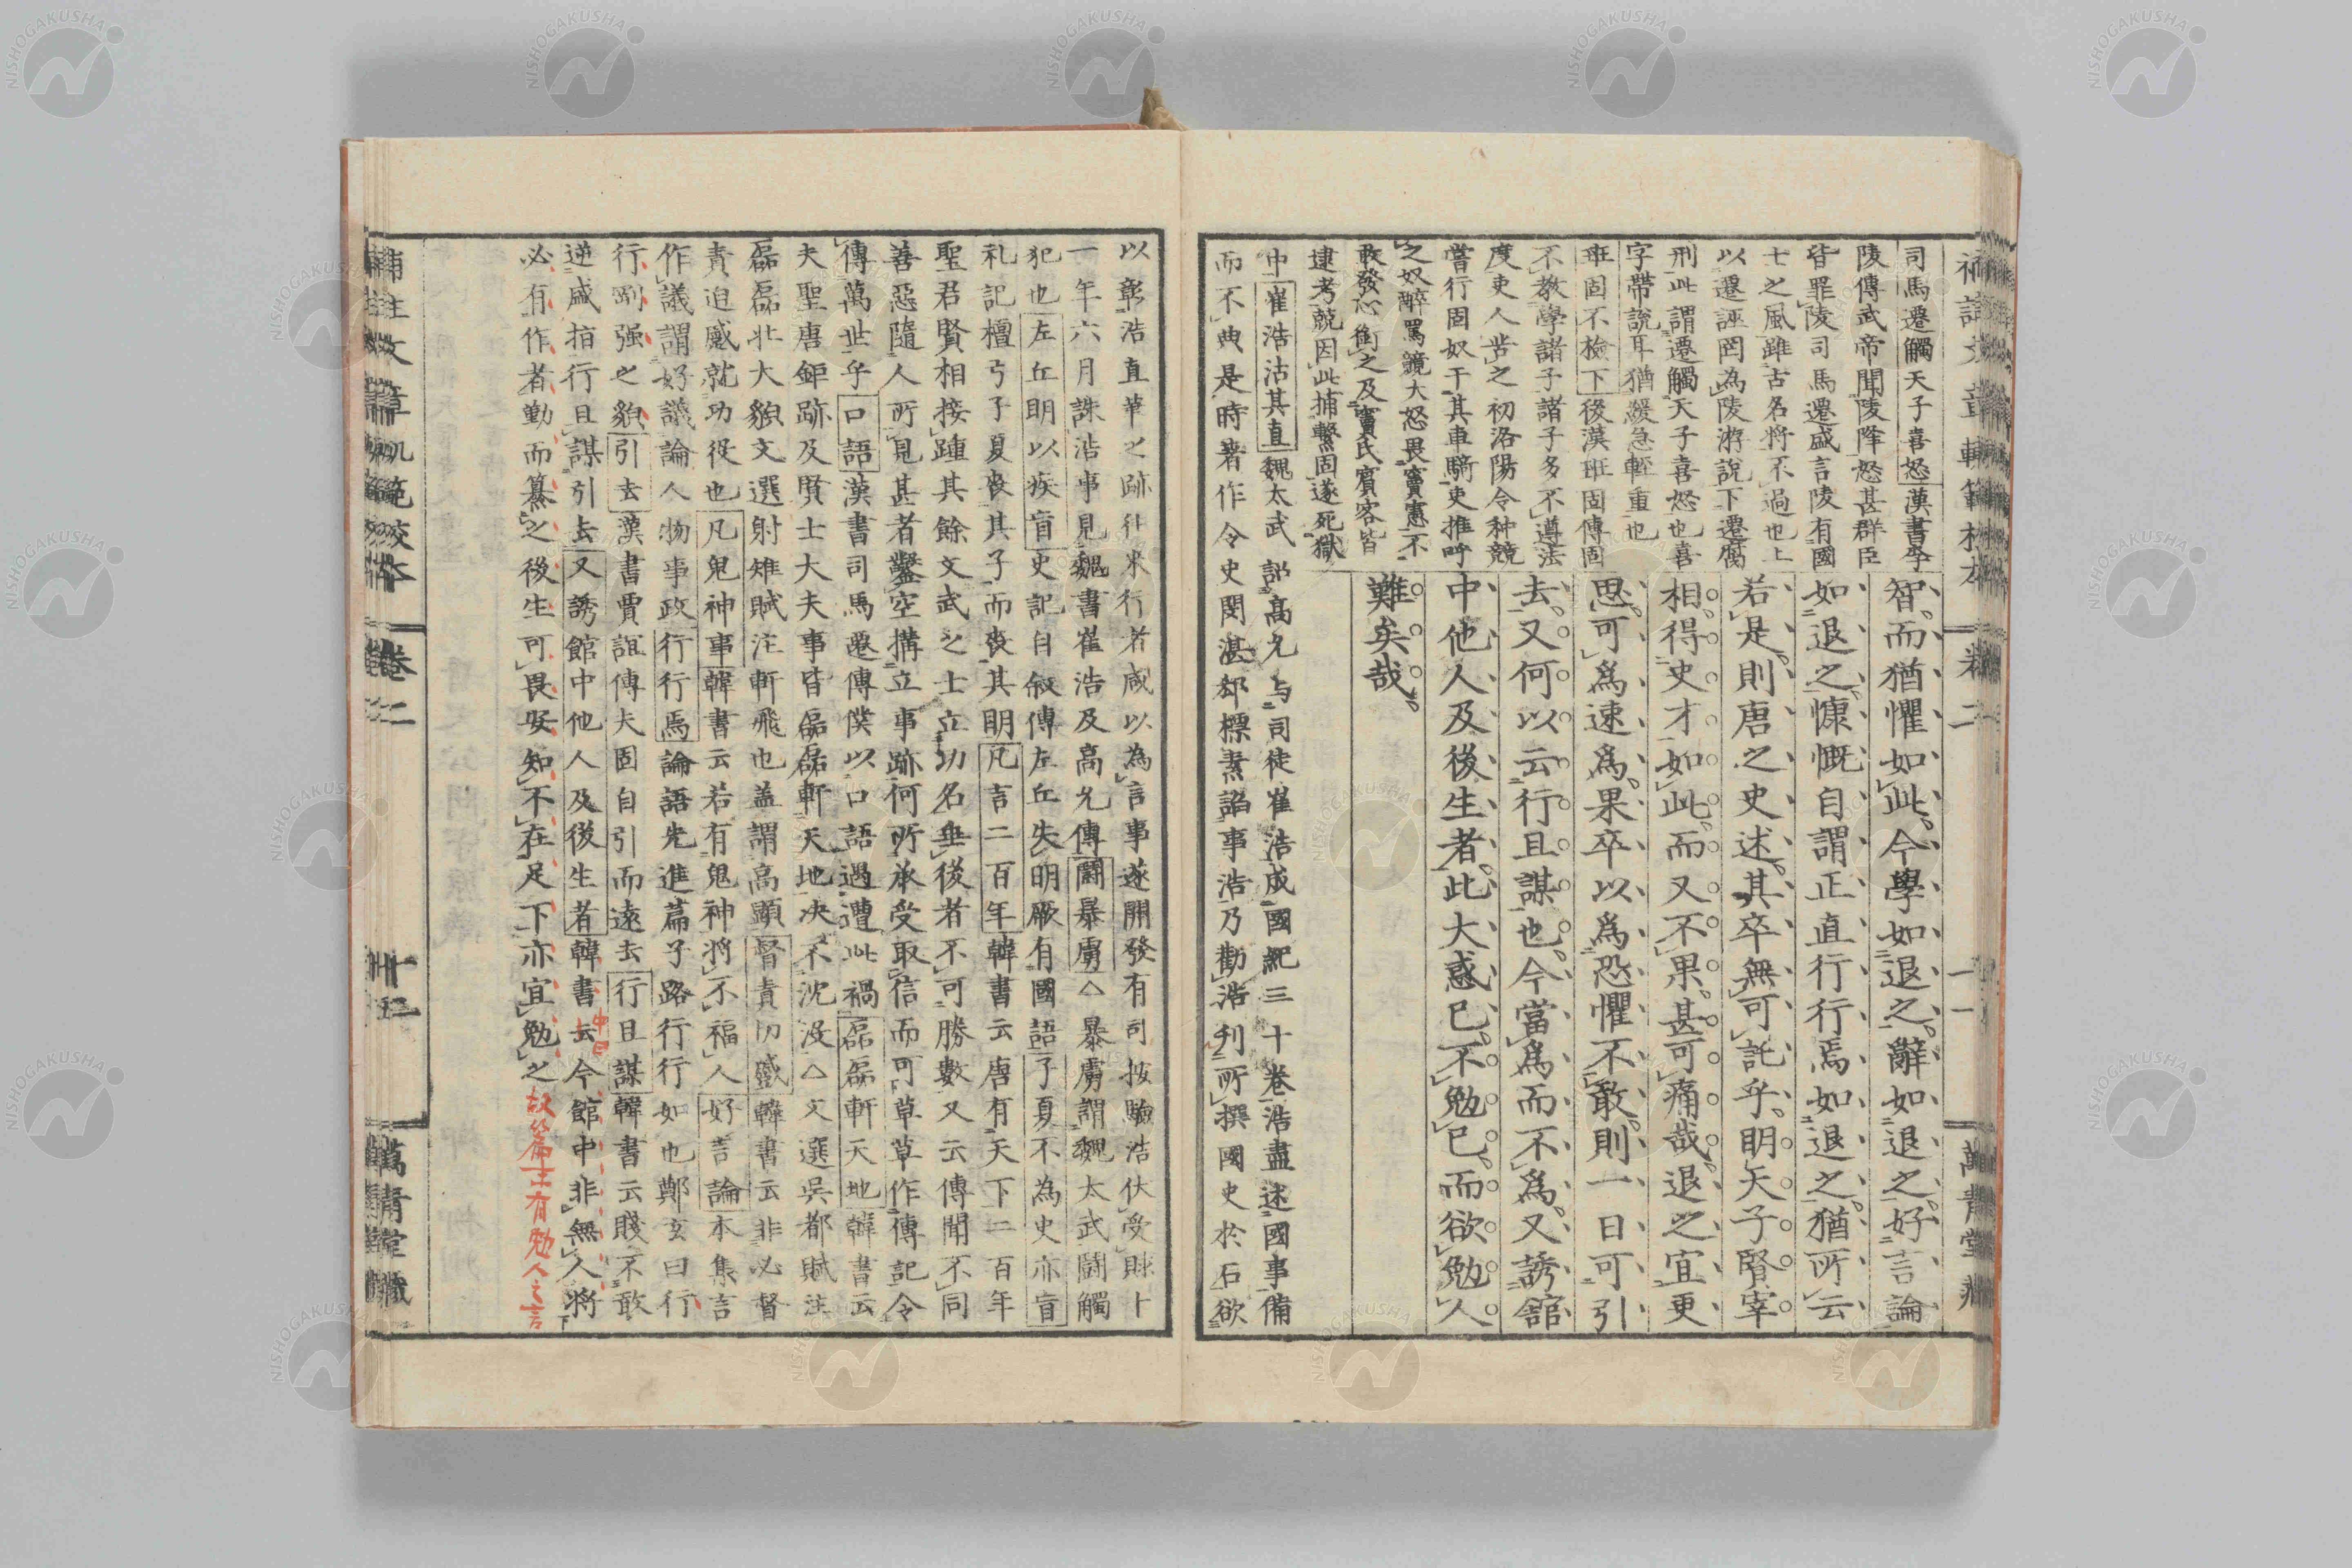 補註文章軌範校本
卷二
十一
萬青堂藏
司馬遷觸天子喜怒漢書李
陵傳武帝聞陵降怒甚群臣
皆罪陵司馬遷盛言陵有國
士之風雖古名將不過也上
以遷誣罔為陵游說下遷腐
刑此謂遷觸天子喜怒也喜
字帶說耳猶緩急輕重也
班固不檢下後漢班固傳固
不教學諸子諸子多不遵法
度吏人苦之初洛陽令种競
嘗行固奴干其車騎吏推呼
之奴醉罵競大怒畏竇憲不
敢發心銜之及竇氏賓客皆
逮考競因此捕繫固遂死獄
智而猶懼如此今學如退之辭如退之好言論
如退之慷慨自謂正直行行焉如退之猶所云
若是則唐之史述其卒無可託乎明天子賢宰
相得史才如此而又不果甚可痛哉退之宜更
思可爲速爲果卒以爲恐懼不敢則一日可引
去又何以云行且謀也今當爲而不爲又誘舘
中他人及後生者此大惑已不勉已而欲勉人
難矣哉
中崔浩沽其直魏太武詔高允与司徒崔浩成國紀三十卷浩盡述國事備
而不典是時著作令史閔湛郄標素諂事浩乃勸浩刋所撰國史於石欲
以彰浩直筆之跡往来行者咸以為言事遂開發有司按驗浩伏受賕十
一年六月誅浩事見魏書崔浩及高允傳鬪暴虜△暴虜謂魏太武鬪觸
犯也左丘明以疾盲史記自叙傳左丘失明厥有國語子夏不為史亦盲
礼記檀弓子夏喪其子而喪其明凡言二百年韓書云唐有天下二百年
聖君賢相接踵其餘文武之士立功名垂後者不可勝數又云傳聞不同
善惡隨人所見甚者鑿空搆立事跡何所承受取信而可草草作傳記令
傳萬世乎口語漢書司馬遷傳僕以口語遇遭此禍磊磊軒天地韓書云
夫聖唐鉅跡及賢士大夫事皆磊磊軒天地决不沈没△文選呉都賦注
磊磊壮大貌文選射雉賦注軒飛也盖謂高顕督責切蹙韓書云非必督
責迫蹙就功役也凡鬼神事韓書云若有鬼神將不福人好言論本集言
作議謂好議論人物事政行行焉論語先進篇子路行行如也鄭玄曰行
行剛强之貌引去漢書賈誼傳夫固自引而遠去行且謀韓書云賤不敢
逆盛指行且謀引去又誘館中他人及後生者韓書云今館中非無人將
中曰
必有作者勤而纂之後生可畏安知不在足下亦宜勉之
故篇末有勉人之言
補註文章軌範校本
卷二
萬青堂藏